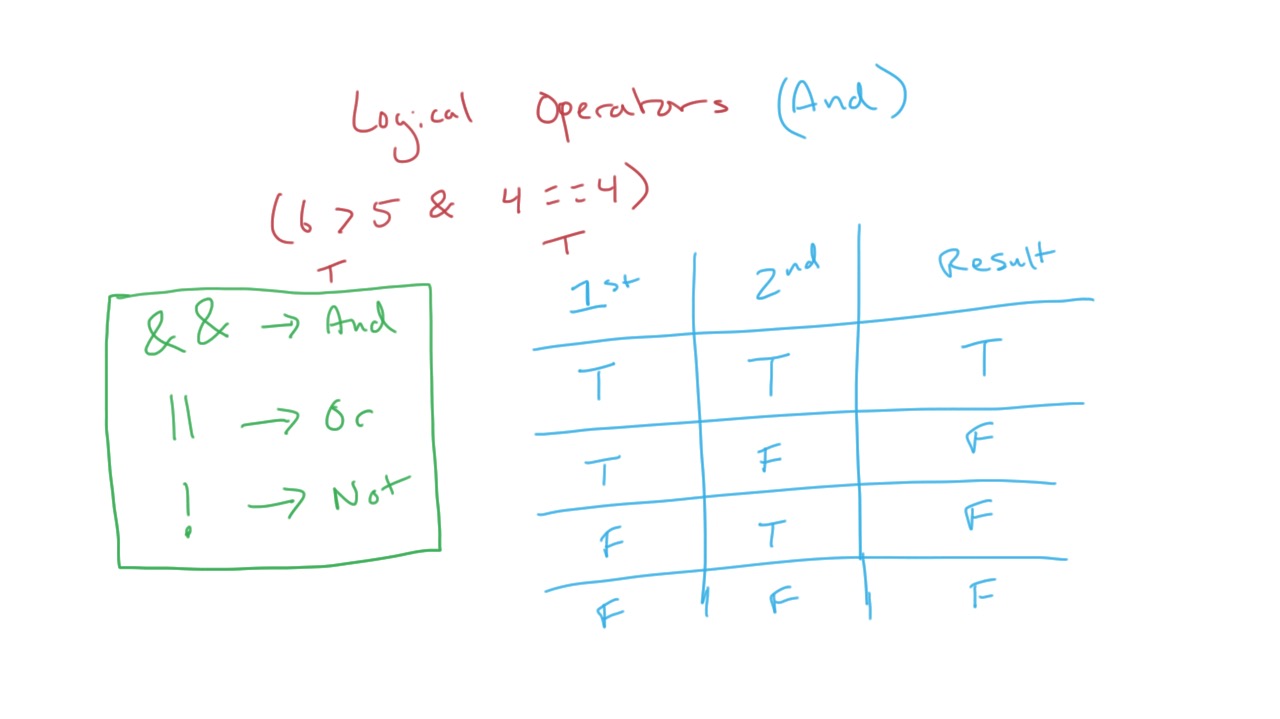 Logical Operators (And)
(6 > 5 & 4 == 4)
T T
&& → And
|| → Or
! → Not
1st 2nd Result
T T T
T F F
F T F
F F F